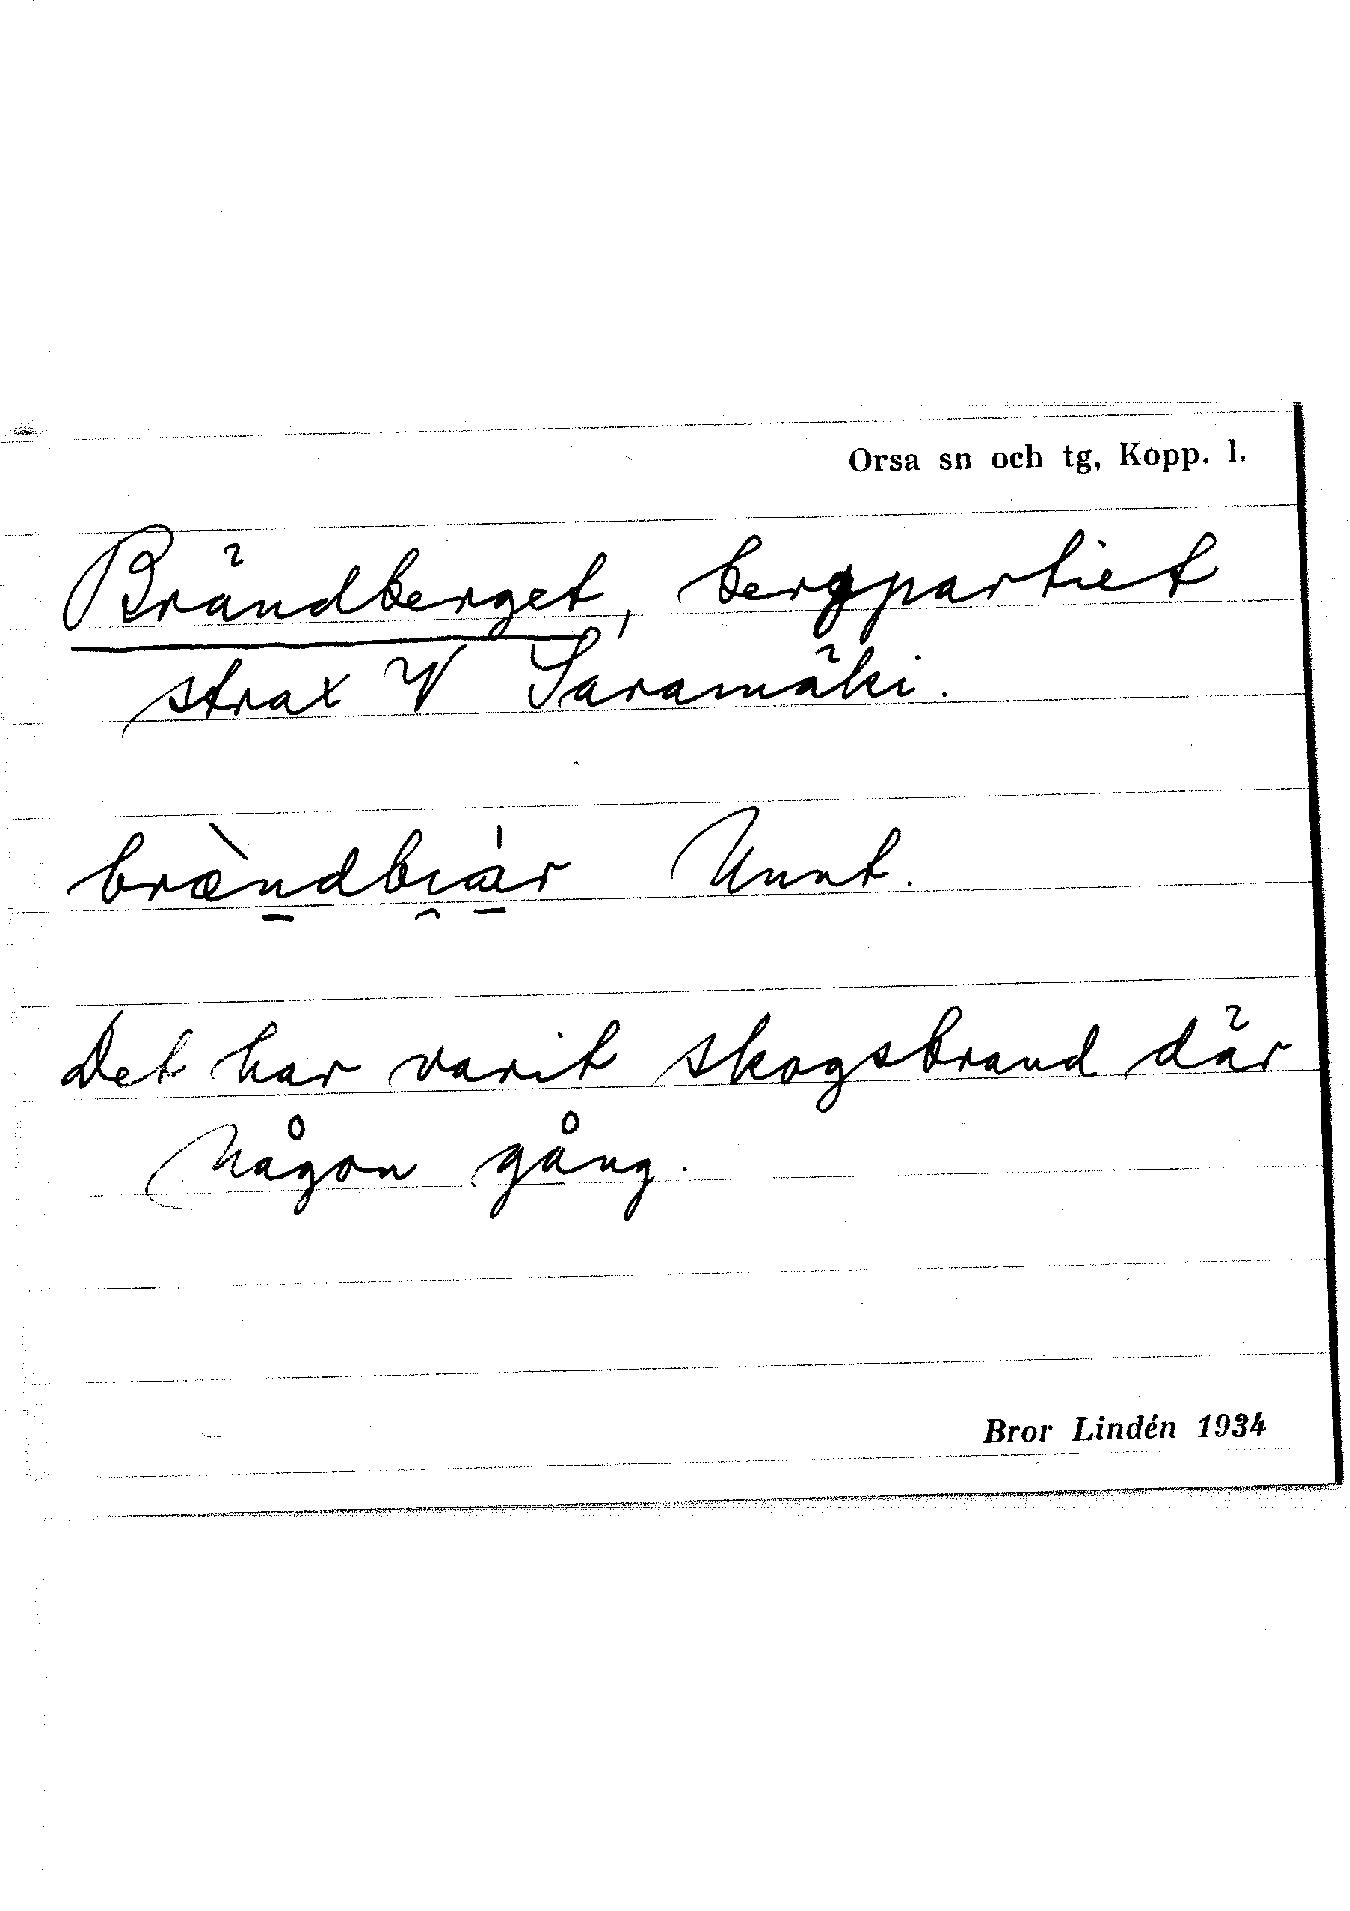 Orsa sn och tg, Kopp. l.
Brändberget, bergpartiet
strax V Saramäki.
bræ̀n̠dbı̯á̠r Unnt.
Det har varit skogsbrand där
någon gång.
Bror Lindén 1934